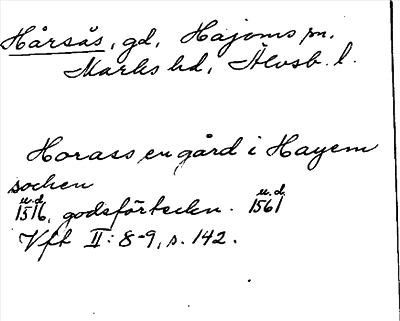 Hårsås, gd, Hajoms sn,
Marks hd, Älvsb. l.
Horass en gård i Hayem
sochen
u.d. u.d.
1516, godsförteckn. 1561
Vft II: 8-9, s. 142.